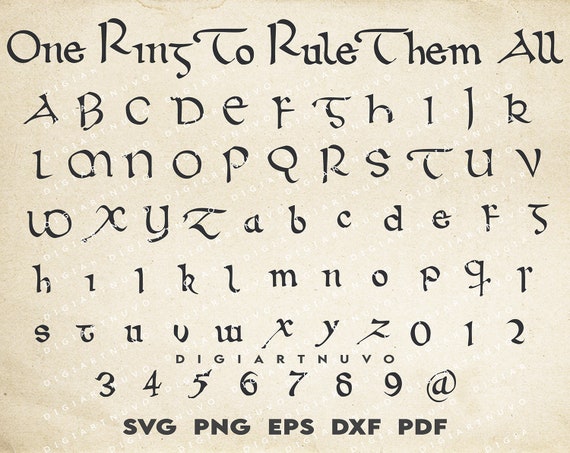 One Ring To Rule Them All
A B C D E F G H I J K
L M N O P Q R S T U V
W X Y Z a b c d e f g
h i j k l m n o p q r
s t u v w x y z 0 1 2
DIGIARTNUVO
3 4 5 6 7 8 9 @
SVG PNG EPS DXF PDF